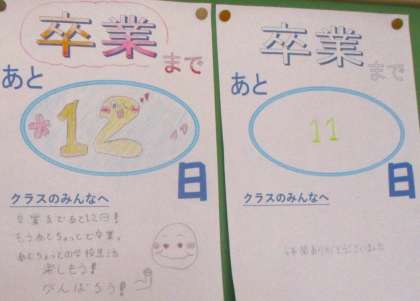 卒業まで
あと
12
日
クラスのみんなへ
卒業まであと12日!
もうあとちょっとで卒業。
あとちょっとの学校生活
楽しもう!
がんばろう!
卒業まで
あと
11
日
クラスのみんなへ
年間ありがとうございました